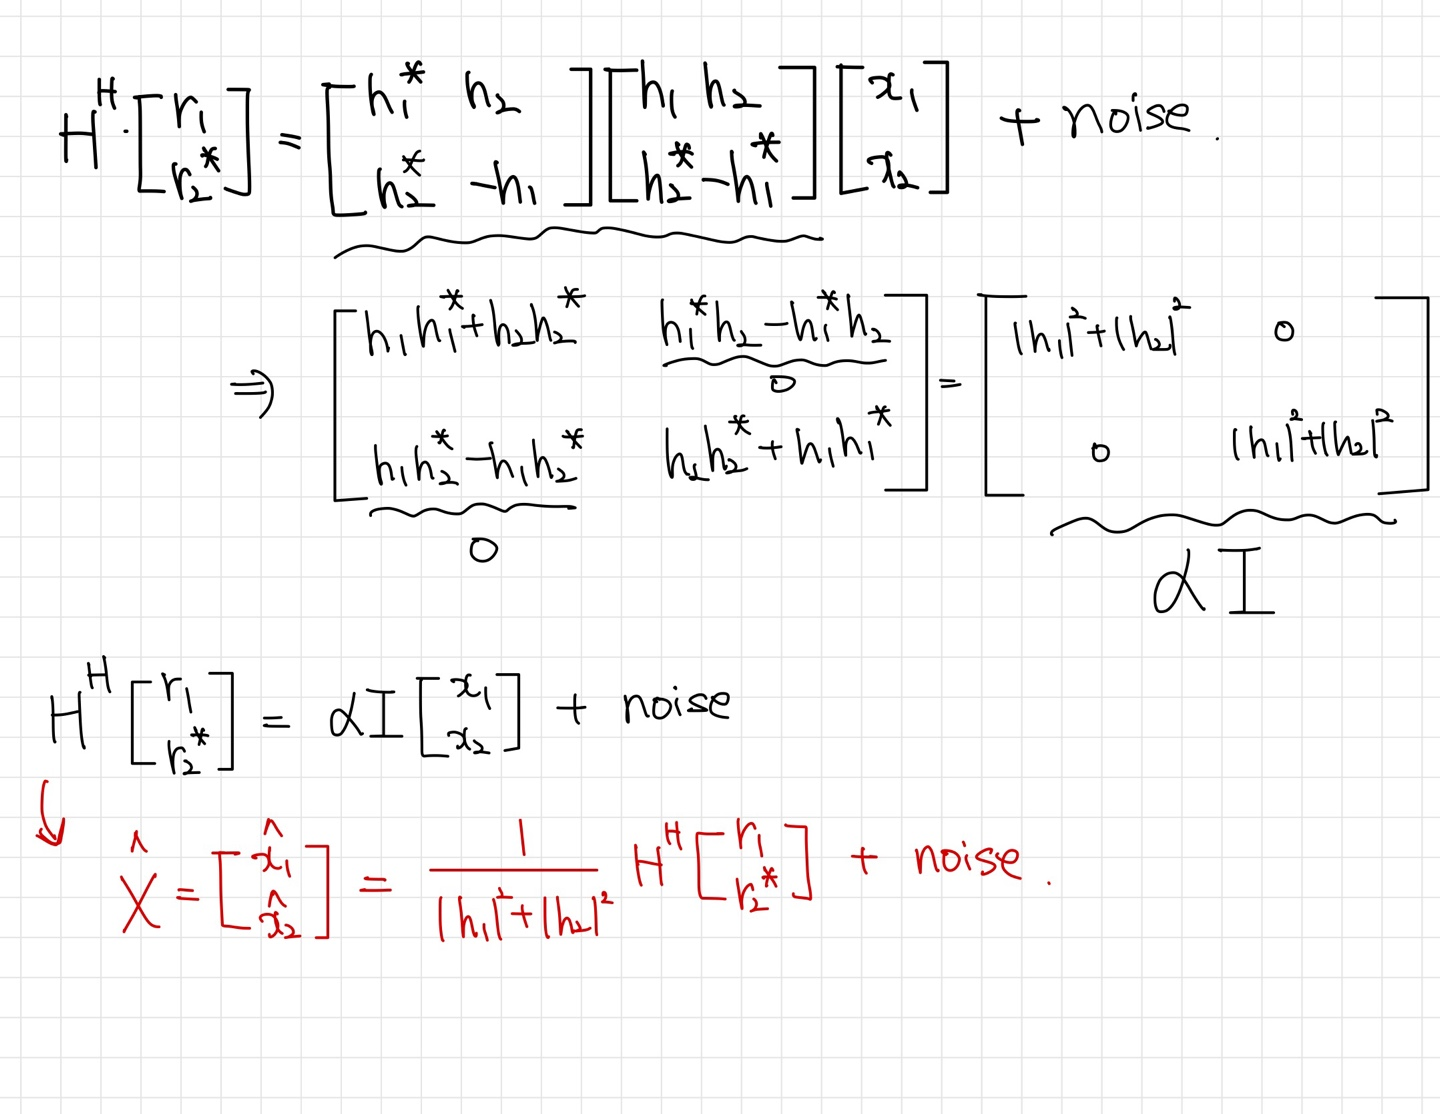 H^H · [r₁ ; r₂*] = [h₁* h₂ ; h₂* −h₁] [h₁ h₂ ; h₂* −h₁*] [x₁ ; x₂] + noise.
⇒ [h₁h₁*+h₂h₂* h₁*h₂−h₁*h₂ ; h₁h₂*−h₁h₂* h₂h₂*+h₁h₁*] = [|h₁|²+|h₂|² 0 ; 0 |h₁|²+|h₂|²]
0
0
αI
H^H [r₁ ; r₂*] = αI [x₁ ; x₂] + noise
X̂ = [x̂₁ ; x̂₂] = 1/(|h₁|²+|h₂|²) H^H [r₁ ; r₂*] + noise.